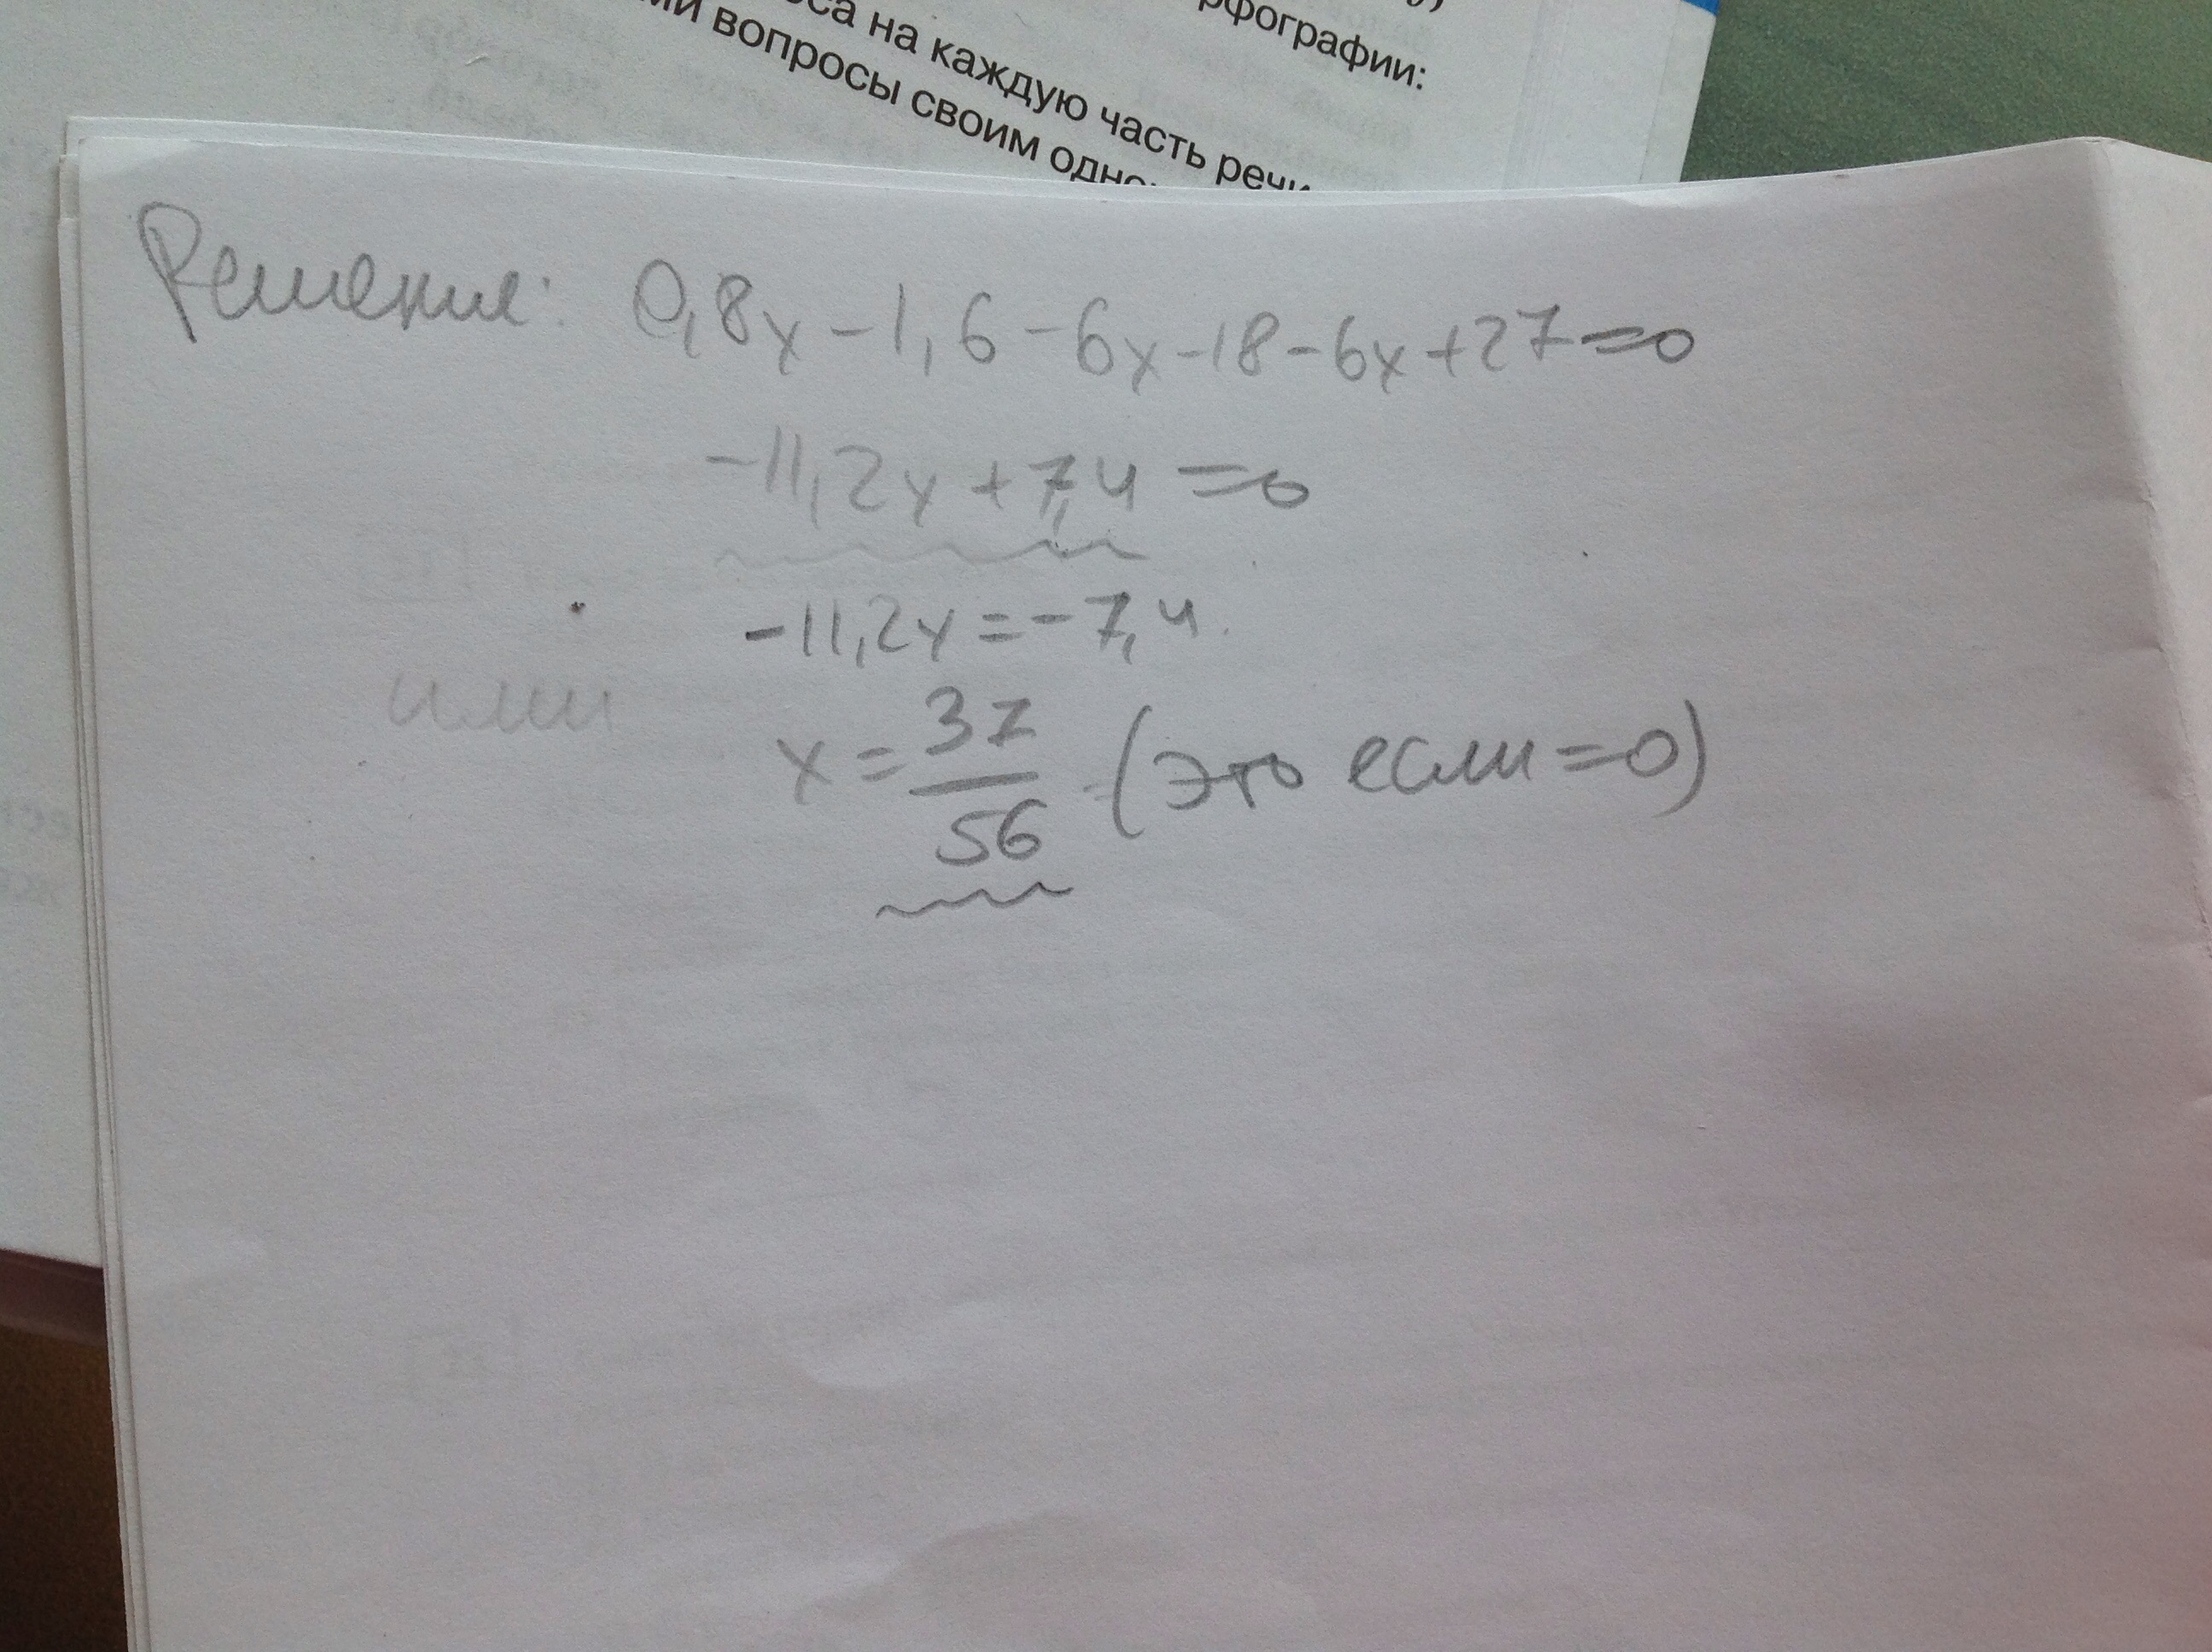 рфографии:
са на каждую часть речи
ми вопросы своим одно
Решение: 0,8x-1,6-6x-18-6x+27=0
-11,2x+7,4=0
-11,2x=-7,4.
или
x=37/56 (это если=0)